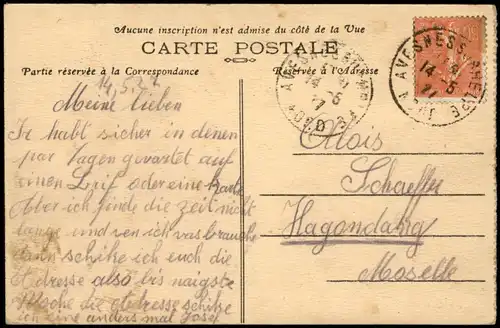 Aucune inscription n'est admise du côté de la Vue
CARTE POSTALE
Partie réservée à la Correspondance
Réservée à l'Adresse
Meine lieben
Ir habt sicher in denen
par Tagen gwartet auf
einen Brif oder eine karte
Aber ich finde die zeit nicht
lange und ven ich vas brauche
dann schike ich euch die
Adresse also bis naigste
Woche die adresse schike
ich eine anders mal Josef
Alois
Schaeffer
Hagondang
Moselle
AVESNES
14